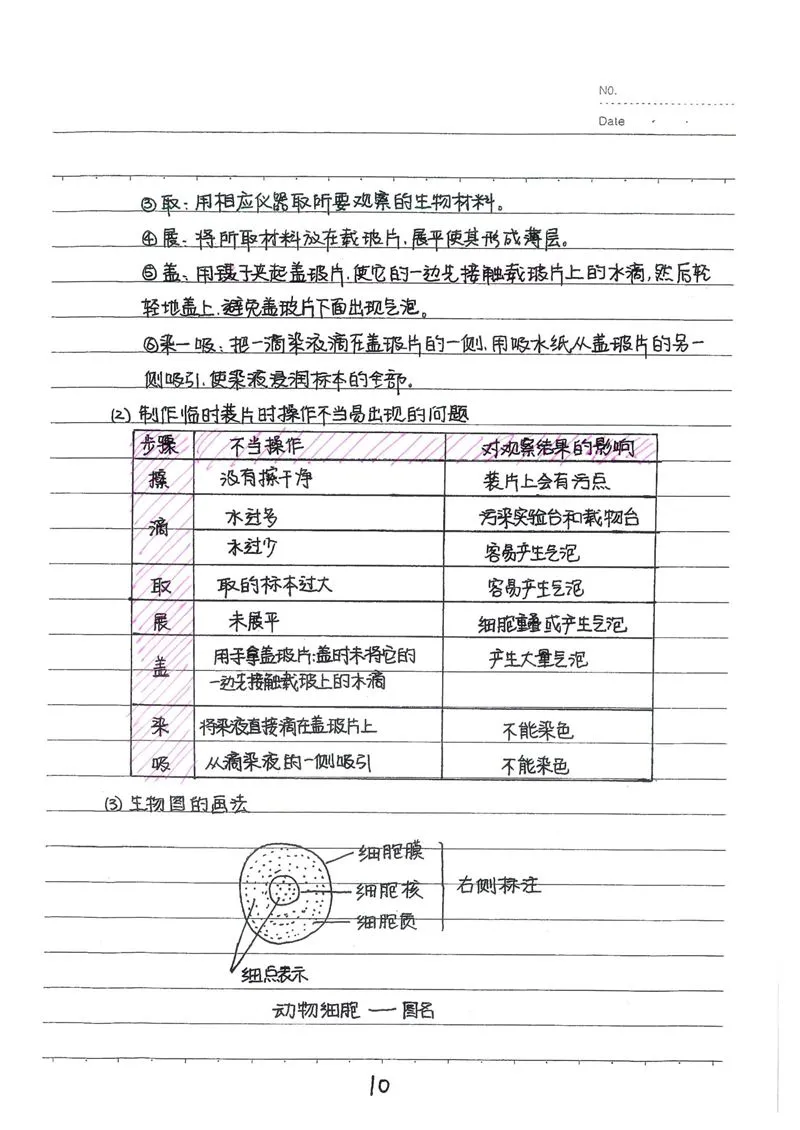 NO.
Date
③取：用相应仪器取所要观察的生物材料。
④展：将所取材料放在载玻片，展平使其形成薄层。
⑤盖：用镊子夹起盖玻片，使它的一边先接触载玻片上的水滴，然后轻
轻地盖上，避免盖玻片下面出现气泡。
⑥染一吸：把一滴染液滴在盖玻片的一侧，用吸水纸从盖玻片的另一
侧吸引，使染液浸润标本的全部。
(2) 制作临时装片时操作不当易出现的问题
步骤 不当操作 对观察结果的影响
擦 没有擦干净 装片上会有污点
滴 水过多 污染实验台和载物台
水过少 容易产生气泡
取 取的标本过大 容易产生气泡
展 未展平 细胞重叠或产生气泡
盖 用手拿盖玻片；盖时未将它的 产生大量气泡
一边先接触载玻上的水滴
染 将染液直接滴在盖玻片上 不能染色
吸 从滴染液的一侧吸引 不能染色
(3) 生物图的画法
细胞膜
细胞核 右侧标注
细胞质
细点表示
动物细胞 — 图名
10